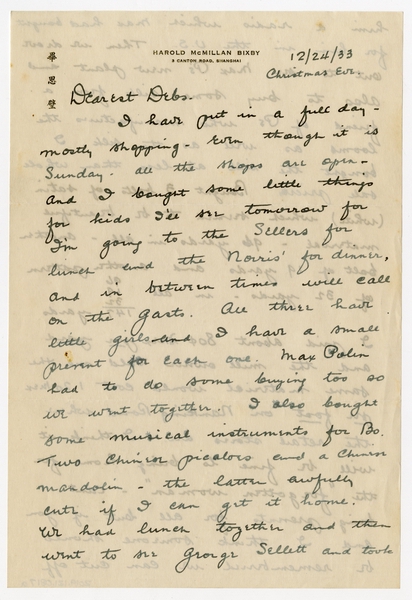 HAROLD McMILLAN BIXBY
3 CANTON ROAD, SHANGHAI
畢
思
璧
12/24/33
Christmas Eve.
Dearest Debs.
I have put in a full day -
mostly shopping. Even though it is
Sunday. all the shops are open -
And I bought some little things
for kids I'll see tomorrow for
I'm going to the Sellers for
lunch and the Norris' for dinner,
and in between times will call
on the Gasts. All three have
little girls and I have a small
present for each one. Max Polin
had to do some buying too so
we went together. I also bought
some musical instruments for Bo.
Two Chinese picalors and a Chinese
mandolin - the latter awfully
cute if I can get it home.
We had lunch together and then
went to see George Sellett and took